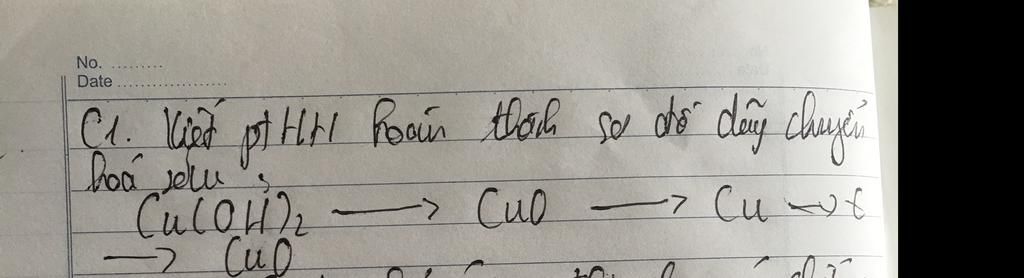 No. .........
Date ...................
C1. Viết ptHH hoàn thành sơ đồ dãy chuyển
hoá sau :
Cu(OH)₂ → CuO → Cu → C
→ CuO